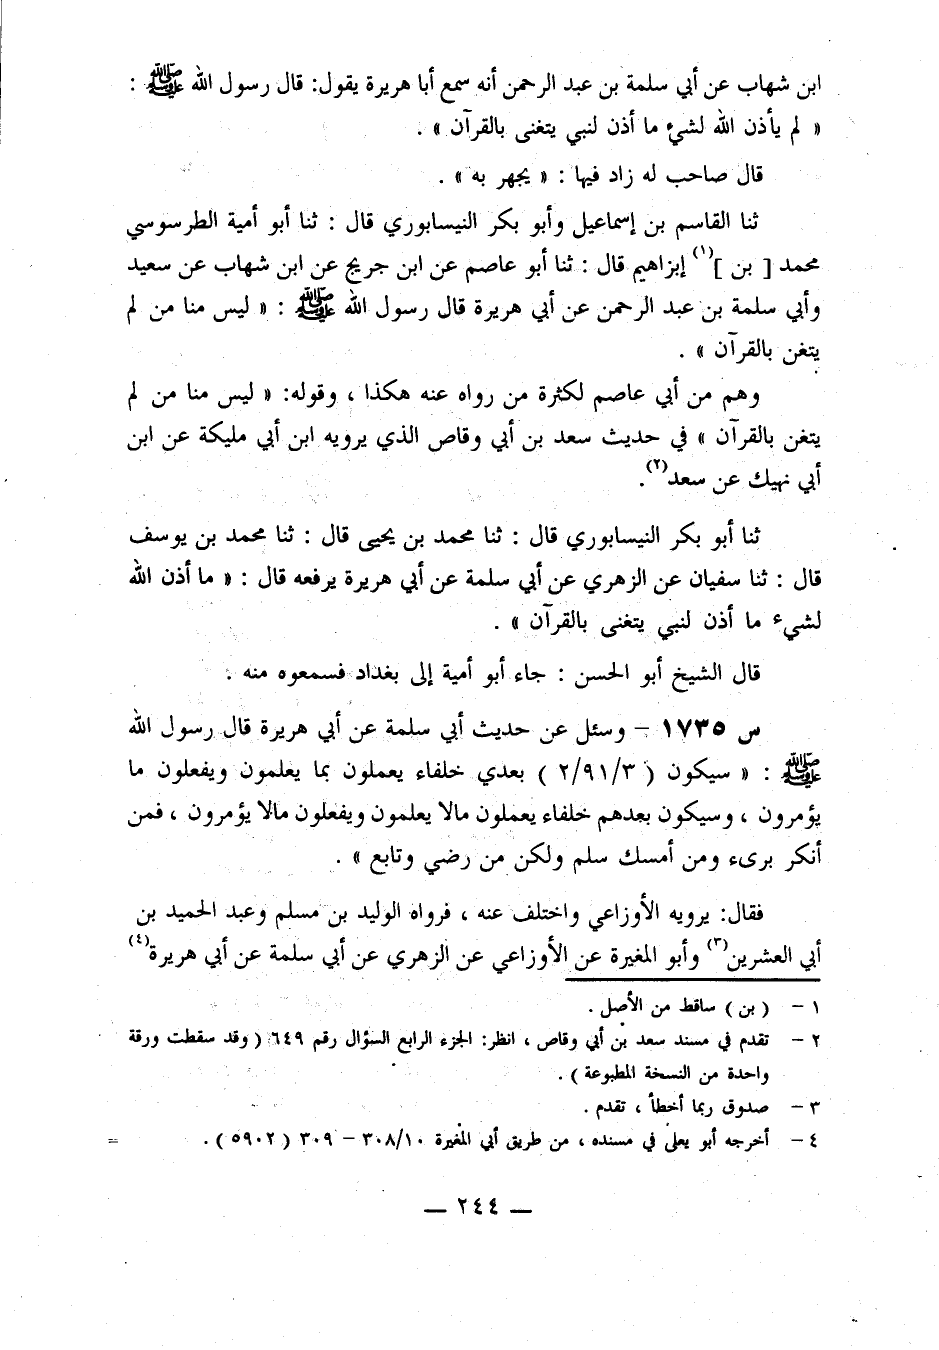 ابن شهاب عن أبي سلمة بن عبد الرحمن أنه سمع أبا هريرة يقول: قال رسول الله ﷺ :
« لم يأذن الله لشيء ما أذن لنبي يتغنى بالقرآن » .
قال صاحب له زاد فيها : « يجهر به » .
ثنا القاسم بن إسماعيل وأبو بكر النيسابوري قال : ثنا أبو أمية الطرسوسي
محمد [ بن ](١) إبراهيم قال : ثنا أبو عاصم عن ابن جريج عن ابن شهاب عن سعيد
وأبي سلمة بن عبد الرحمن عن أبي هريرة قال رسول الله ﷺ : « ليس منا من لم
يتغن بالقرآن » .
وهم من أبي عاصم لكثرة من رواه عنه هكذا ، وقوله: « ليس منا من لم
يتغن بالقرآن » في حديث سعد بن أبي وقاص الذي يرويه ابن أبي مليكة عن ابن
أبي نهيك عن سعد(٢).
ثنا أبو بكر النيسابوري قال : ثنا محمد بن يحيى قال : ثنا محمد بن يوسف
قال : ثنا سفيان عن الزهري عن أبي سلمة عن أبي هريرة يرفعه قال : « ما أذن الله
لشيء ما أذن لنبي يتغنى بالقرآن » .
قال الشيخ أبو الحسن : جاء أبو أمية إلى بغداد فسمعوه منه .
س ١٧٣٥ - وسئل عن حديث أبي سلمة عن أبي هريرة قال رسول الله
ﷺ : « سيكون ( ٢/٩١/٣ ) بعدي خلفاء يعملون بما يعلمون ويفعلون ما
يؤمرون ، وسيكون بعدهم خلفاء يعملون مالا يعلمون ويفعلون مالا يؤمرون ، فمن
أنكر برىء ومن أمسك سلم ولكن من رضي وتابع » .
فقال: يرويه الأوزاعي واختلف عنه ، فرواه الوليد بن مسلم وعبد الحميد بن
أبي العشرين(٣) وأبو المغيرة عن الأوزاعي عن الزهري عن أبي سلمة عن أبي هريرة(٤)
١ - ( بن ) ساقط من الأصل .
٢ - تقدم في مسند سعد بن أبي وقاص ، انظر: الجزء الرابع السؤال رقم ٦٤٩ ( وقد سقطت ورقة
واحدة من النسخة المطبوعة ) .
٣ - صدوق ربما أخطأ ، تقدم .
٤ - أخرجه أبو يعلى في مسنده ، من طريق أبي المغيرة ٣٠٨/١٠ - ٣٠٩ ( ٥٩٠٢ ) . =
— ٢٤٤ —